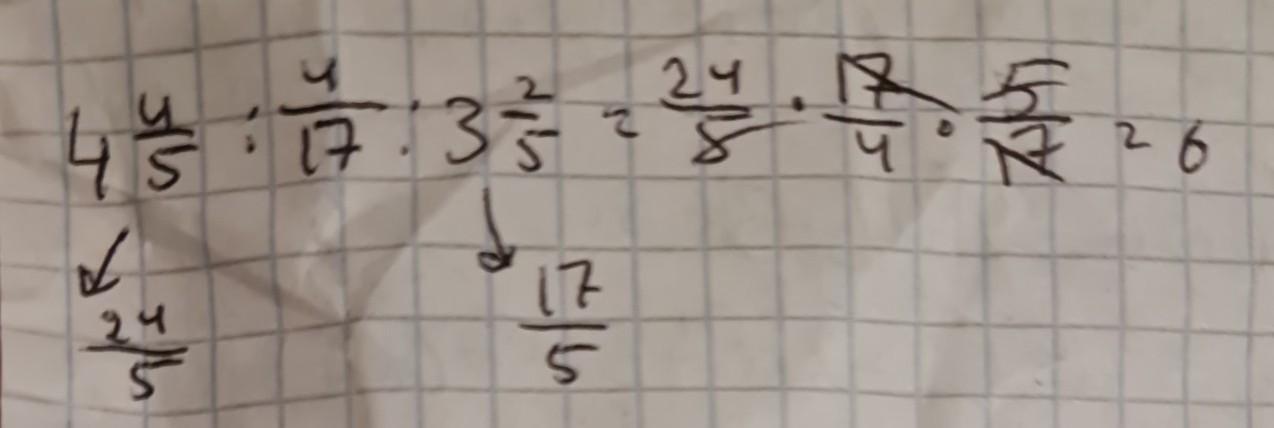 4 4/5 : 4/17 : 3 2/5 = 24/5 · 17/4 · 5/17 = 6
24/5 17/5